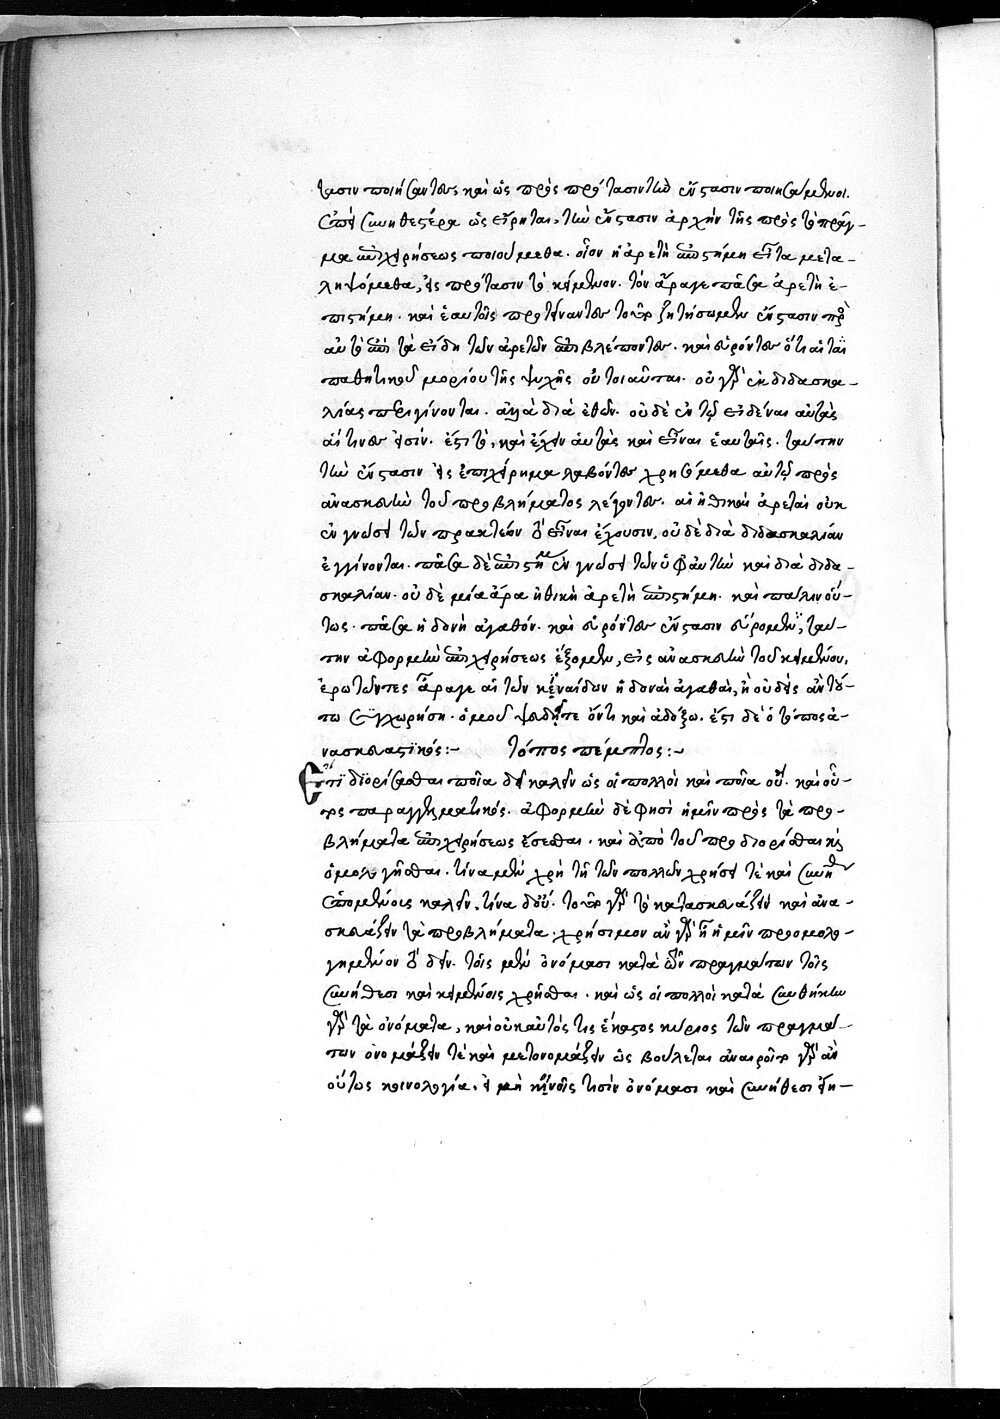 τασιν ποιήσαντες καὶ ὡς πρὸς πρότασιν τὴν ἔνστασιν ποιησάμενοι.
ἐπεὶ συνηθεστέρα ὡς εἴρηται, τὴν ἔνστασιν ἀρχὴν τῆς πρὸς τὸ πρᾶγ-
μα ἐπιχειρήσεως ποιούμεθα. οἷον ἡ ἀρετὴ ἐπιστήμη εἶτα μετα-
ληψόμεθα, εἰς πρότασιν τὸ κείμενον. τὸν ἆραγε πᾶσα ἀρετὴ ἐ-
πιστήμη. καὶ ἑαυτοῖς προτείναντες τοῦτο ζητήσωμεν ἔνστασιν πρὸς
αὐτὸ ἐπὶ τὰ εἴδη τῶν ἀρετῶν ἐπιβλέποντες. καὶ εὑρόντες ὅτι αἱ τοῦ
παθητικοῦ μορίου τῆς ψυχῆς οὐ τοιαῦται. οὐ γὰρ ἐκ διδασκα-
λίας περιγίνονται. ἀλλὰ διὰ ἐθῶν. οὐδὲ ἐν τῷ εἰδέναι αὐτὰς
αἵτινες εἰσίν. ἔστι τὸ, καὶ ἔχειν αὐτὰς καὶ εἶναι ἑαυταῖς. ταύτην
τὴν ἔνστασιν εἰς ἐπιχείρημα λαβόντες χρησόμεθα αὐτῷ πρὸς
ἀνασκευὴν τοῦ προβλήματος λέγοντες. αἱ ἠθικαὶ ἀρεταὶ οὐκ
ἐν γνώσει τῶν πρακτέων τὸ εἶναι ἔχουσιν, οὐδὲ διὰ διδασκαλίαν
ἐγγίνονται. πᾶσα δὲ ἐπιστήμη ἐν γνώσει τῶν ὑφ' αὑτὴν καὶ διὰ διδα-
σκαλίαν. οὐδὲ μία ἄρα ἠθικὴ ἀρετὴ ἐπιστήμη. καὶ πάλιν οὕ-
τως. πᾶσα ἡδονὴ ἀγαθόν. καὶ εὑρόντες ἔνστασιν εὕρομεν, ταύ-
την ἀφορμὴν ἐπιχειρήσεως ἕξομεν, εἰς ἀνασκευὴν τοῦ κειμένου,
ἐρωτῶντες ἆραγε αἱ τῶν κιναίδων ἡδοναὶ ἀγαθαὶ, ἢ οὐδεὶς ἂν τού-
τω συγχωρήση. ὁμοῦ ψευδεῖ τε ὄντι καὶ ἀδόξω. ἔστι δὲ ὁ τόπος ἀ-
νασκευαστικός:- τόπος πέμπτος:-
Ἔτι διορίσασθαι ποῖα δεῖ καλεῖν ὡς οἱ πολλοὶ καὶ ποῖα οὔ. καὶ οὗ-
τος παραγγελματικός. ἀφορμὴν δὲ φησὶ ἡμῖν πρὸς τὰ προ-
βλήματα ἐπιχειρήσεως ἔσεσθαι. καὶ ἀπὸ τοῦ προδιορίσασθαι καὶ
ὁμολογῆσθαι. τίνα μὲν χρὴ τῇ τῶν πολλῶν χρήσει τὲ καὶ συνηθεία
ἑπομένοις καλεῖν, τίνα δ' οὔ. τοῦτο γὰρ τὸ κατασκευάζειν καὶ ἀνα-
σκευάζειν τὰ προβλήματα. χρήσιμον ἂν γὰρ ᾖ ἡμῖν προομολο-
γημένον τὸ δεῖν. τοῖς μὲν ὀνόμασι κατὰ τῶν πραγμάτων τοῖς
συνήθεσι καὶ κειμένοις χρῆσθαι. καὶ ὡς οἱ πολλοὶ κατὰ συνθήκην
γὰρ τὰ ὀνόματα, καὶ οὐκ αὐτός τις ἕκαστος κύριος τῶν πραγμά-
των ὀνομάζειν τὲ καὶ μετονομάζειν ὡς βούλεται ἀναιροῖτο γὰρ ἂν
οὕτως κοινολογία. εἰ μὴ κοινοῖς τισὶν ὀνόμασι καὶ συνήθεσι ἔπη-